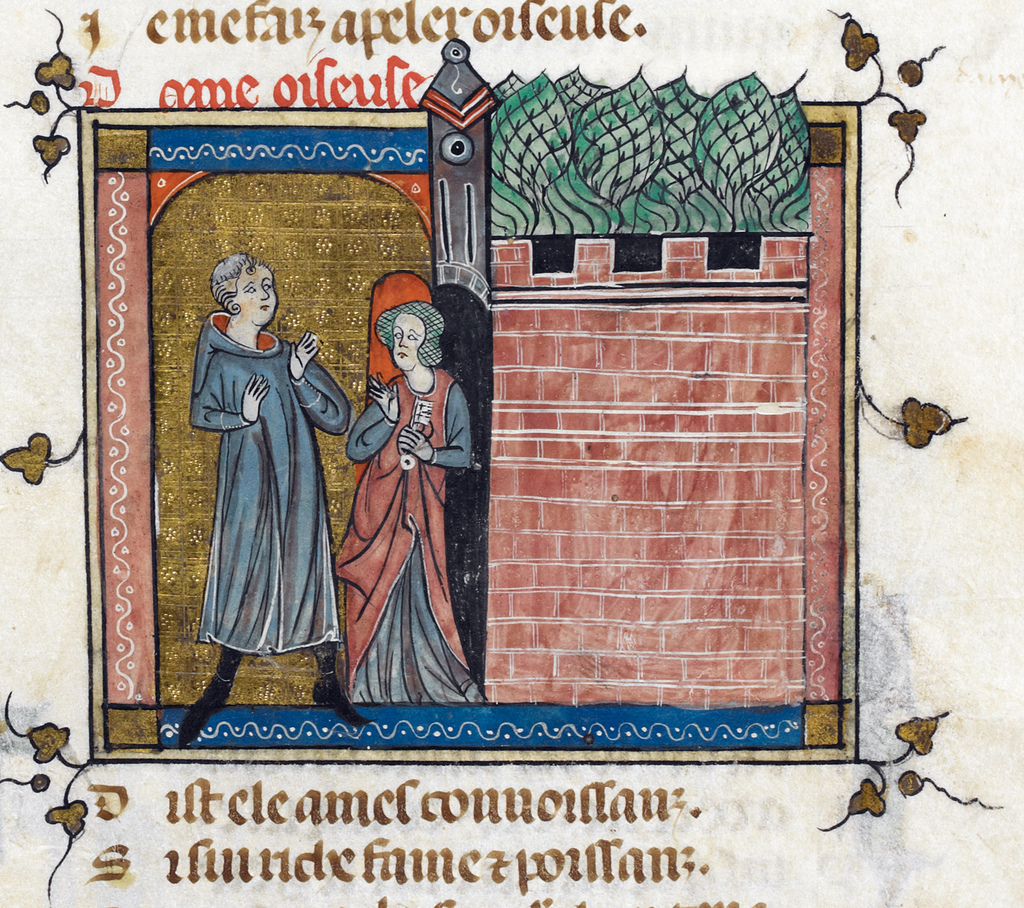 Je me faiz apeler oiseuse.
Dame oiseuse
Dist ele a mes connoissanz.
Si sui riche fame ⁊ poissanz.